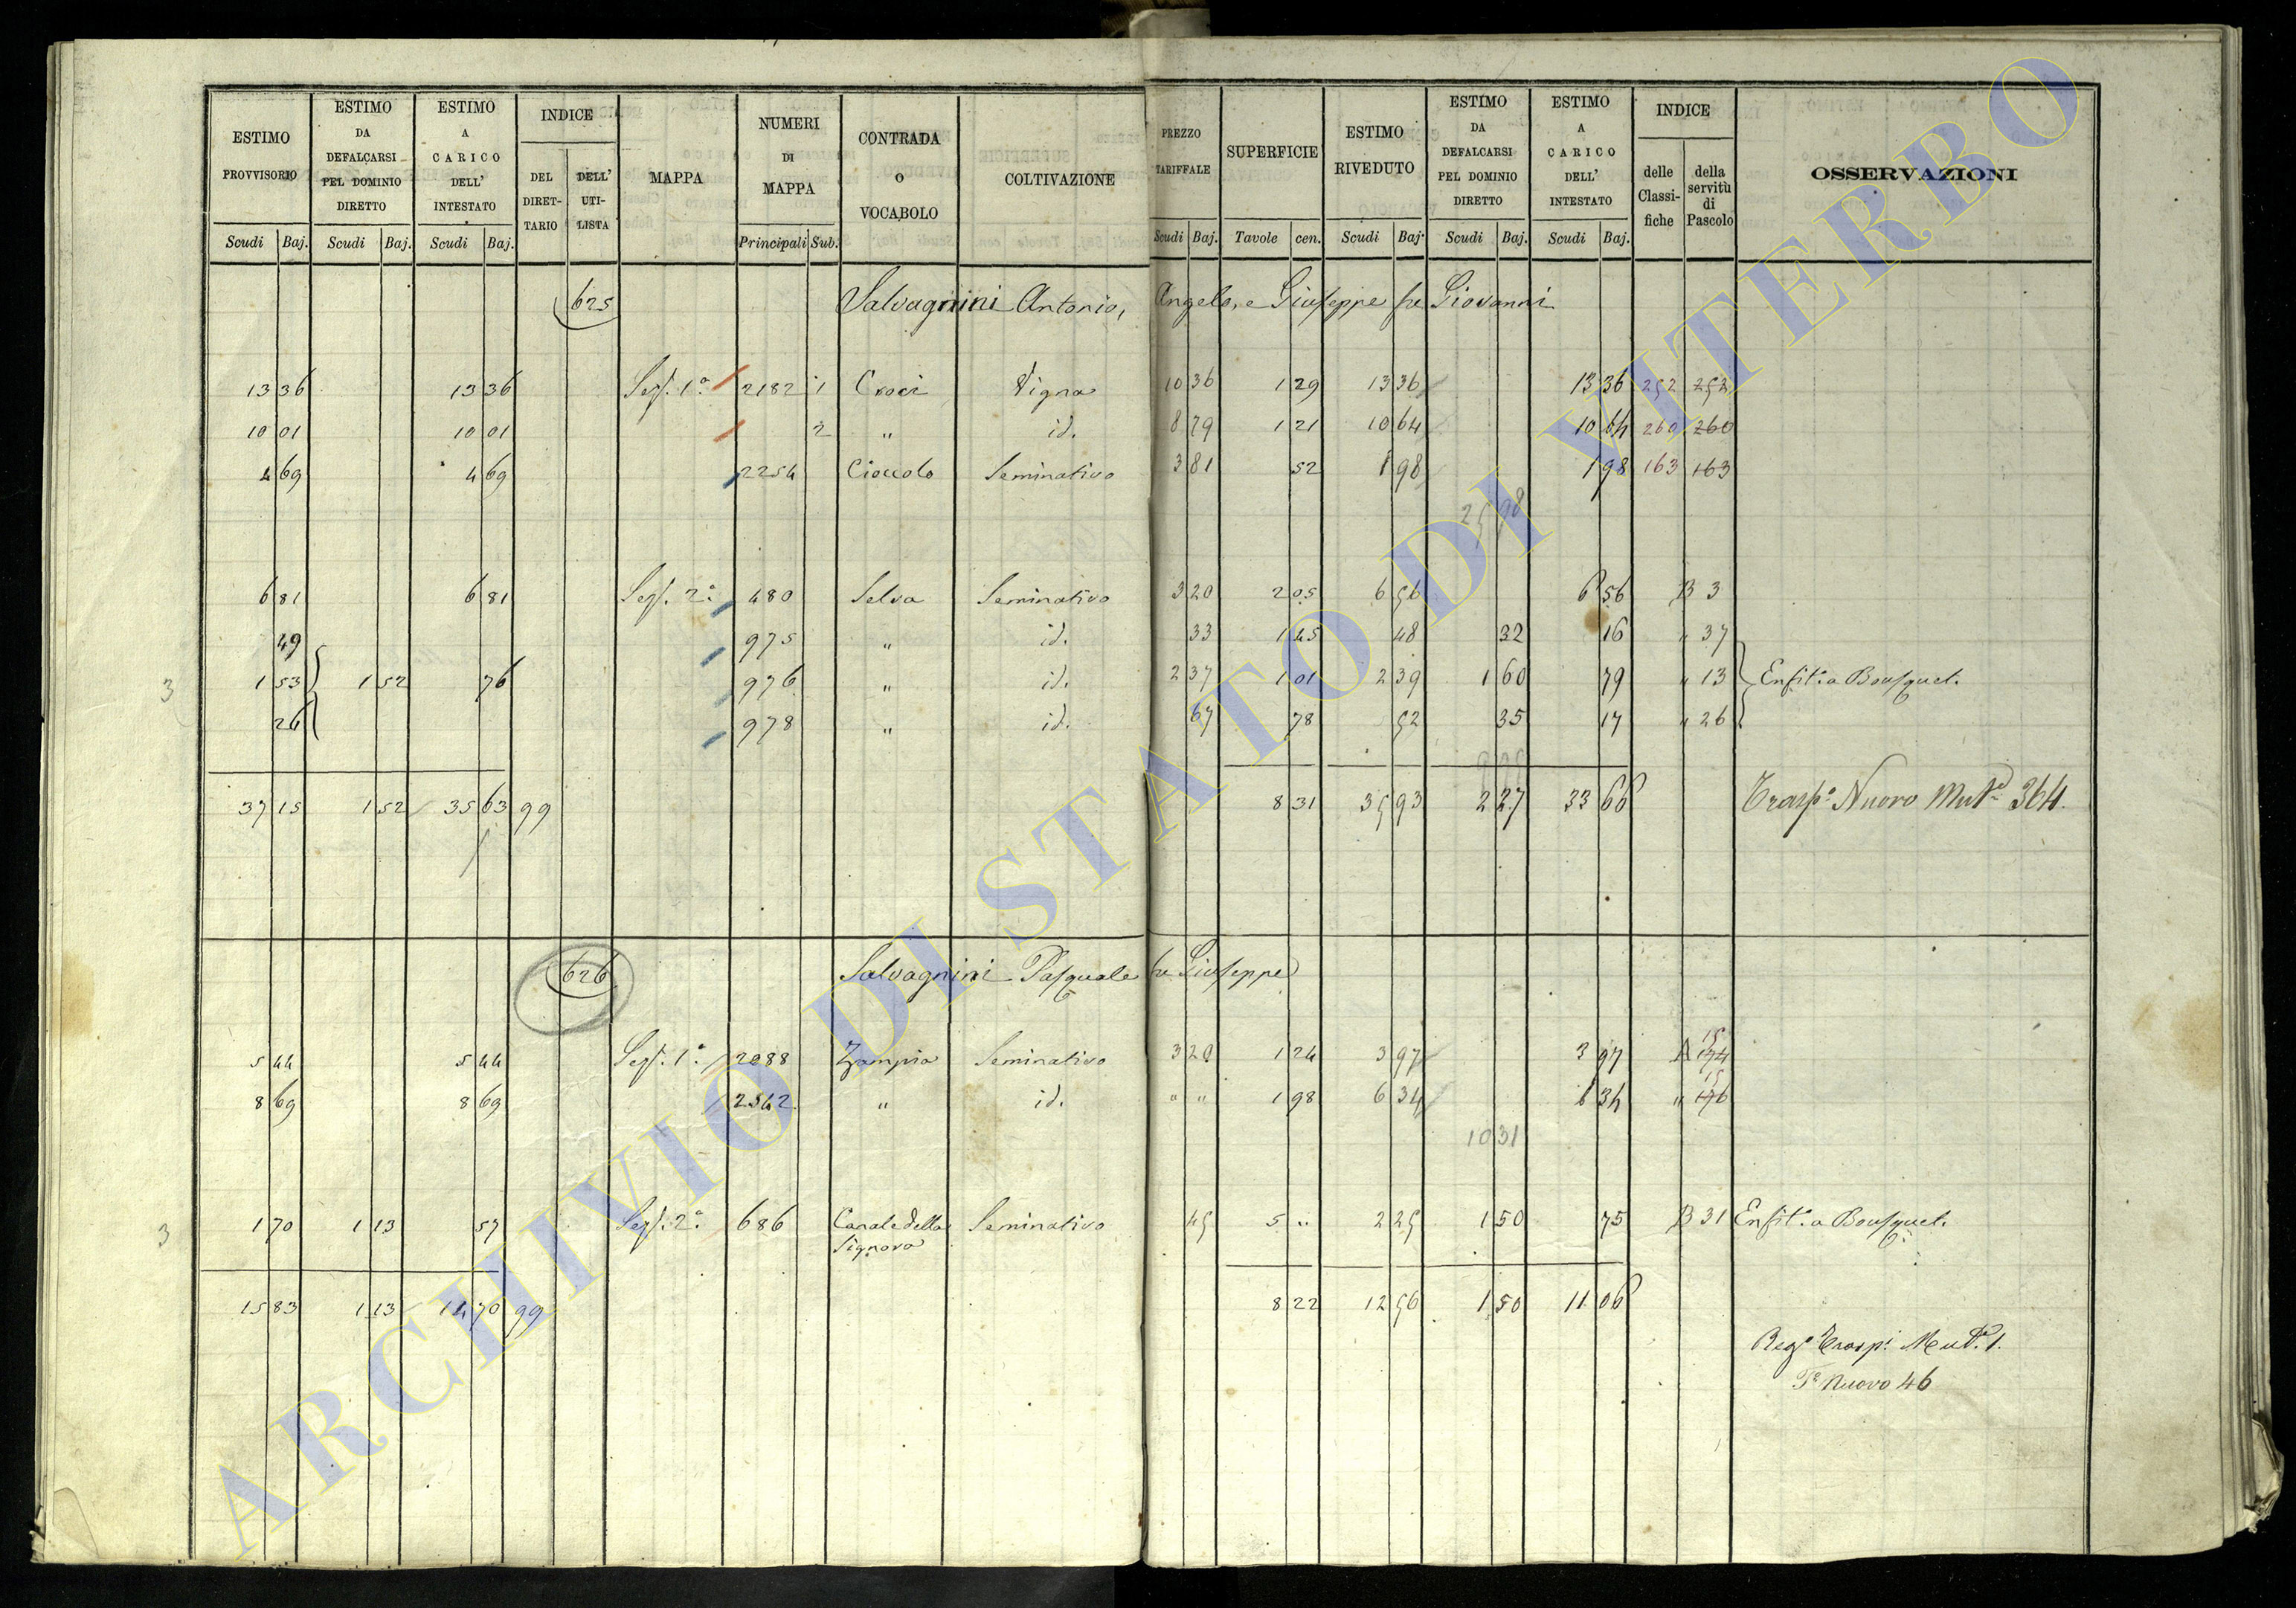 ESTIMO PROVVISORIO | ESTIMO DA DEFALCARSI PEL DOMINIO DIRETTO | ESTIMO A CARICO DELL' INTESTATO | INDICE DEL DIRETTARIO | DELL' UTILISTA | MAPPA | NUMERI DI MAPPA | CONTRADA O VOCABOLO | COLTIVAZIONE | PREZZO TARIFFALE | SUPERFICIE | ESTIMO RIVEDUTO | ESTIMO DA DEFALCARSI PEL DOMINIO DIRETTO | ESTIMO A CARICO DELL' INTESTATO | INDICE delle Classifiche | della servitù di Pascolo | OSSERVAZIONI
Scudi Baj. Scudi Baj. Scudi Baj. Principali Sub. Scudi Baj. Tavole cen. Scudi Baj. Scudi Baj. Scudi Baj.
625 Salvagnini Antonio, Angelo, e Giuseppe fu Giovanni
13 36 13 36 Sez. 1a 2182 1 Croci Vigna 10 36 1 29 13 36 13 36 252 252
10 01 10 01 2 " id. 8 79 1 21 10 64 10 64 260 260
4 69 4 69 2254 Cioccolo Seminativo 3 81 52 1 98 1 98 163 163
25 98
6 81 6 81 Sez. 2a 480 Selva Seminativo 3 20 2 05 6 56 6 56 B 3
49 975 " id. 33 1 45 48 32 16 " 37
3 1 53 1 52 76 976 " id. 2 37 1 01 2 39 1 60 79 " 13 Enfit. a Bousquet.
26 978 " id. 67 78 52 35 17 " 26
37 15 1 52 35 63 99 8 31 35 93 2 27 33 66 Trasp.o Nuovo Mut.a 364.
626 Salvagnini Pasquale fu Giuseppe
5 44 5 44 Sez. 1a 2088 Zampia Seminativo 3 20 1 24 3 97 3 97 A 174 15
8 69 8 69 2342 " id. " " 1 98 6 34 6 34 " 176 15
10 31
3 1 70 1 13 57 Sez. 2a 686 Canale della Signora Seminativo 45 5 " 2 25 1 50 75 B 31 Enfit. a Bousquet.
15 83 1 13 14 70 99 8 22 12 56 1 50 11 06
Reg.o Trasp.i Mut.a 1.
T.o Nuovo 46
ARCHIVIO DI STATO DI VITERBO